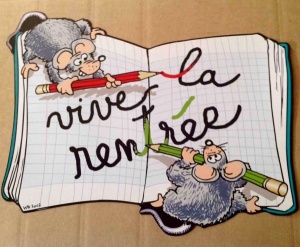 vive la
rentrée